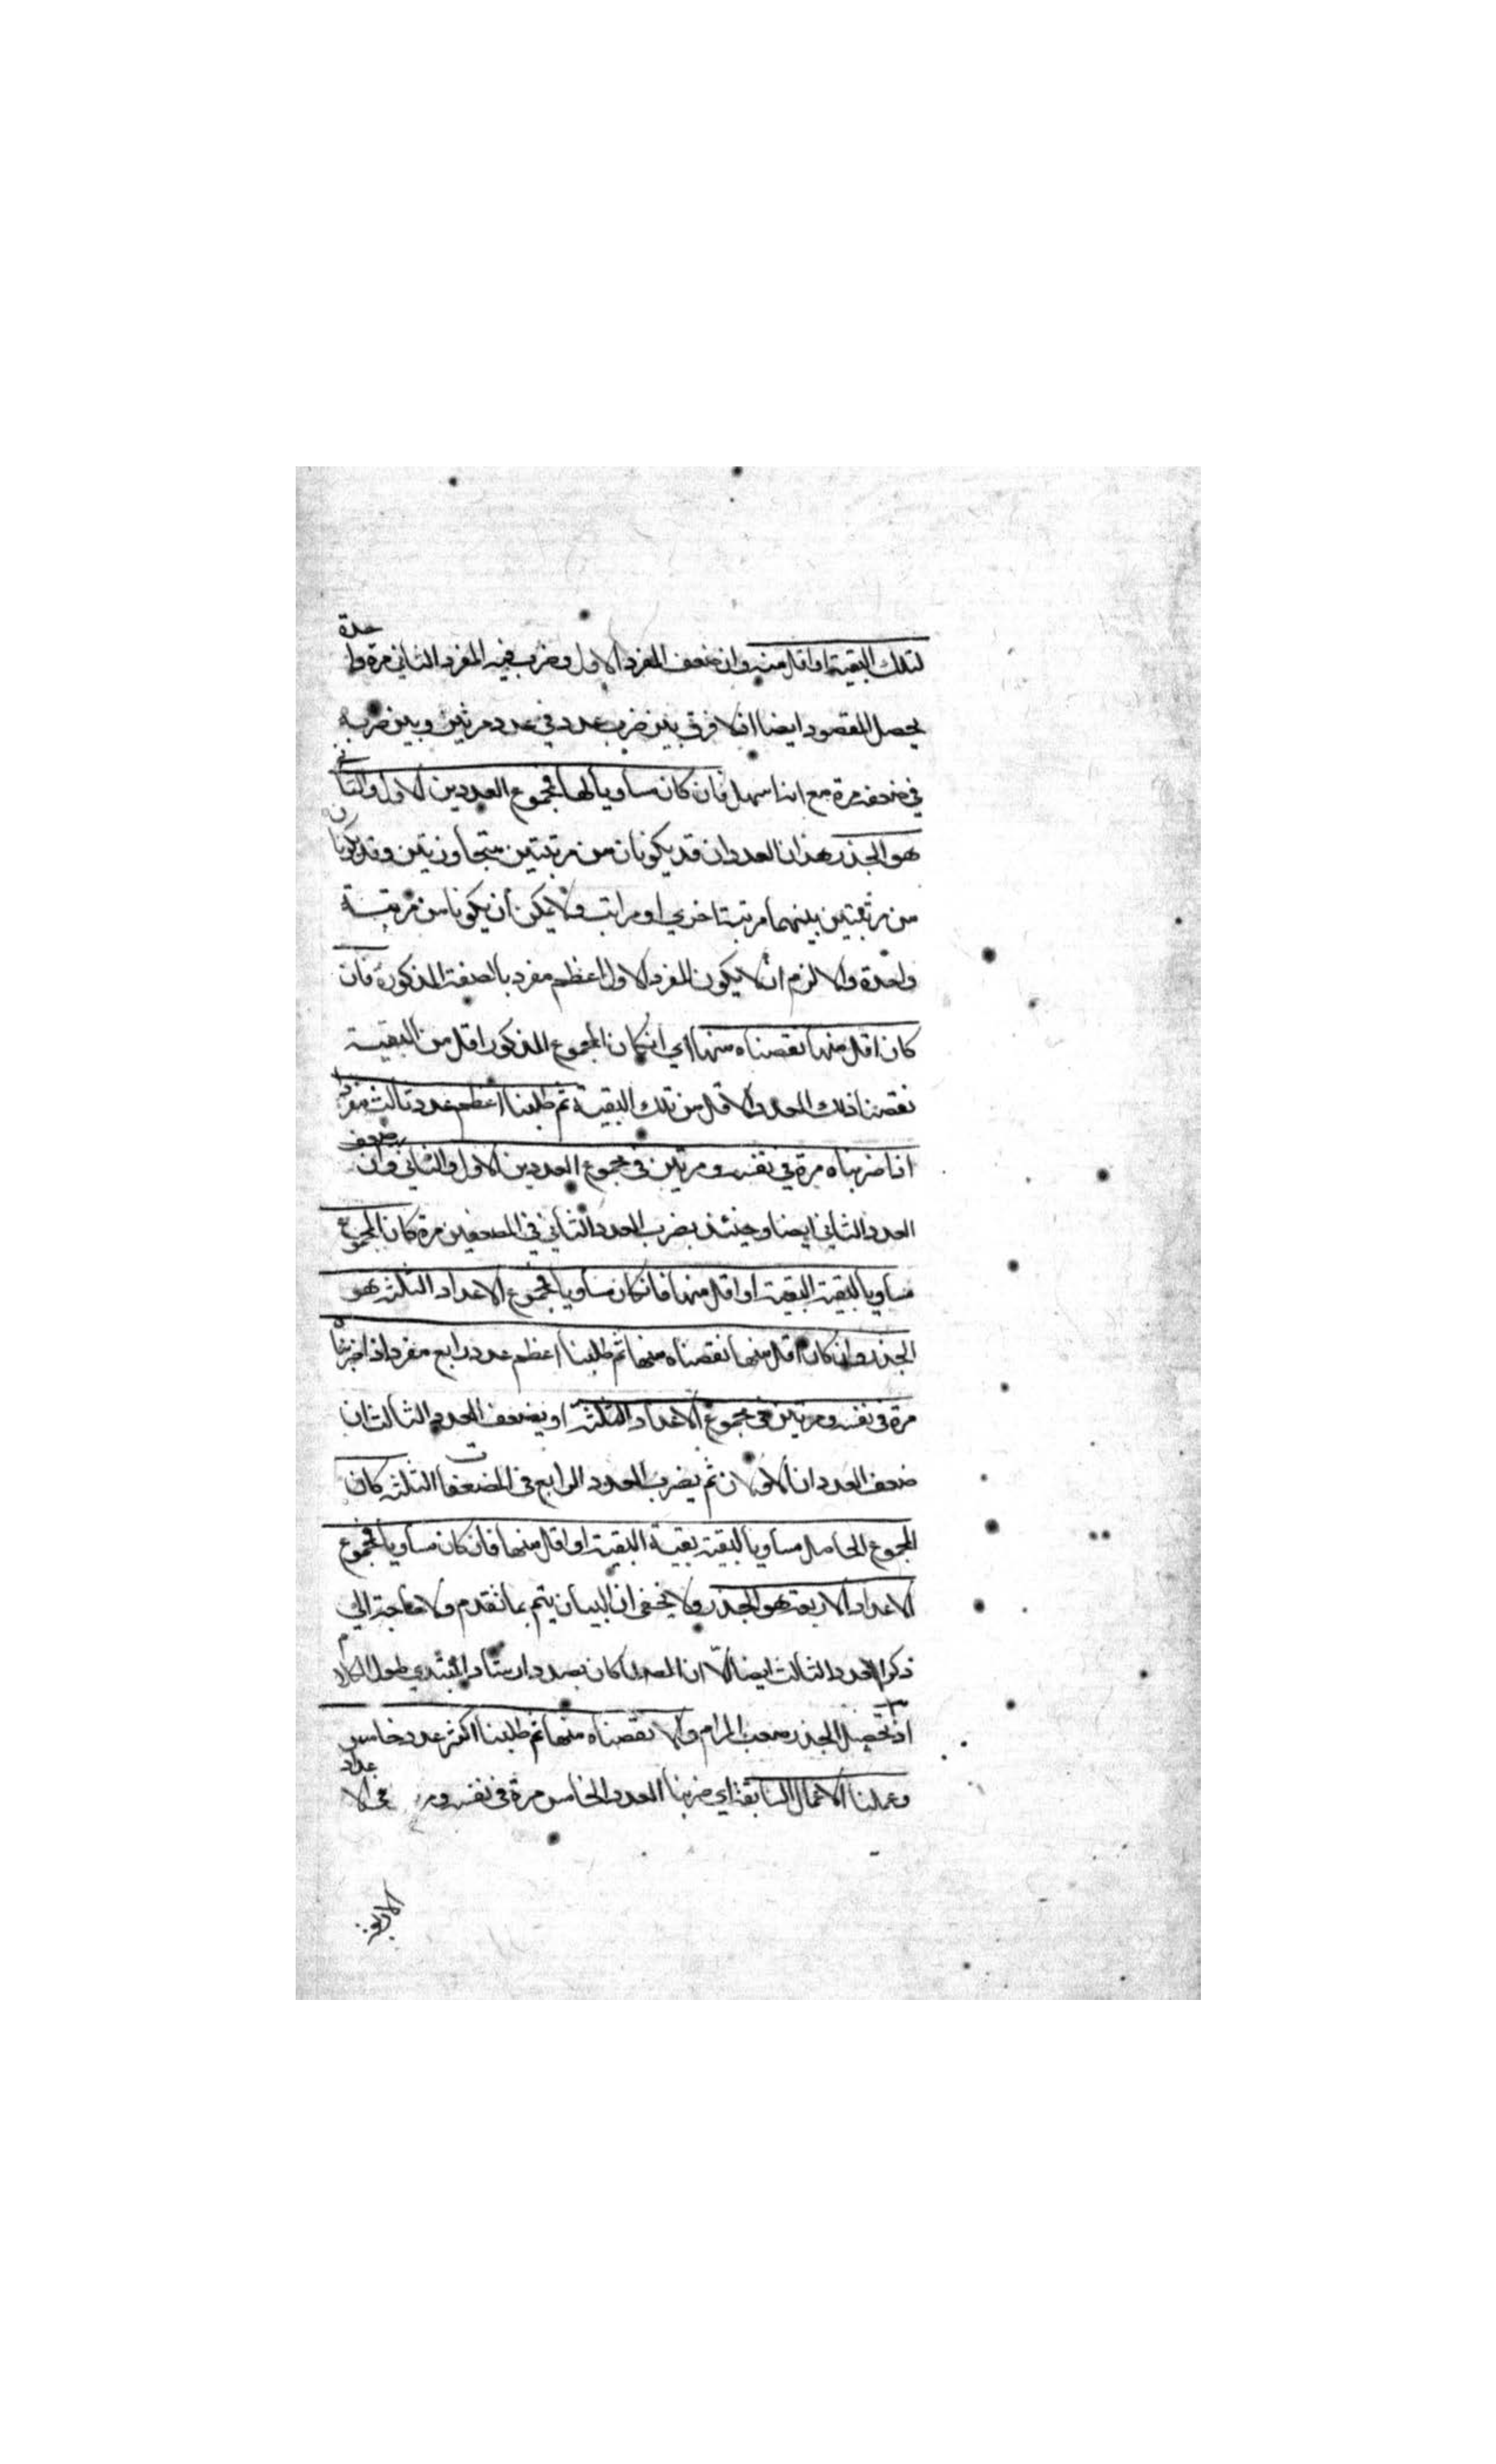 لتلك البقية او اقل منه وان ضعف المفرد الاول وضرب فيه المفرد الثاني مرة واحدة
يحصل المقصود ايضا اذ لا فرق بين ضرب عدد في عدد مرتين وبين ضربه
في ضعفه مرة مع انه اسهل فان كان مساويا لها فمجموع العددين الاول والثاني
هو الجذر هذان العددان قد يكونان من مرتبتين متجاوزتين وقد يكونان
من مرتبتين بينهما مرتبة اخري او مراتب ولا يمكن ان يكونا من مرتبة
واحدة والا لزم ان لا يكون المفرد الاول اعظم مفرد بالصفة المذكورة فان
كان اقل منها نقصناه منها اي ان كان المجموع المذكور اقل من البقية
نقصنا ذلك العدد الاقل من تلك البقية ثم طلبنا اعظم عدد ثالث مفرد
اذا ضربناه مرة في نفسه ومرتين في مجموع العددين الاول والثاني وان ضعف
العدد الثاني ايضا وحينئذ يضرب العدد الثاني في المضعفين مرة كان المجموع
مساويا لبقية البقية او اقل منها فان كان مساويا فمجموع الاعداد الثلثة هو
الجذر وان كان اقل منها نقصناه منها ثم طلبنا اعظم عدد رابع مفرد اذا ضربناه
مرة في نفسه ومرتين في مجموع الاعداد الثلثة او يضعف العدد الثالث ان
ضعف العددان الاولان ثم يضرب العدد الرابع في المضعفات الثلثة كان
المجموع الحاصل مساويا لبقية بقية البقية او اقل منها فان كان مساويا فمجموع
الاعداد الاربعة هو الجذر ولا يخفى ان البيان يتم بما تقدم ولا حاجة الي
ذكر العدد الثالث ايضا الا ان المصـ لما كان بصدد ارشاد المبتدي طول الكلام
اذ تحصيل الجذر صعب المرام والا نقصناه منها ثم طلبنا اكثر عدد خامس
وعملنا الاعمال السابقة اي ضربنا العدد الخامس مرة في نفسه في الاعداد
الاربعة